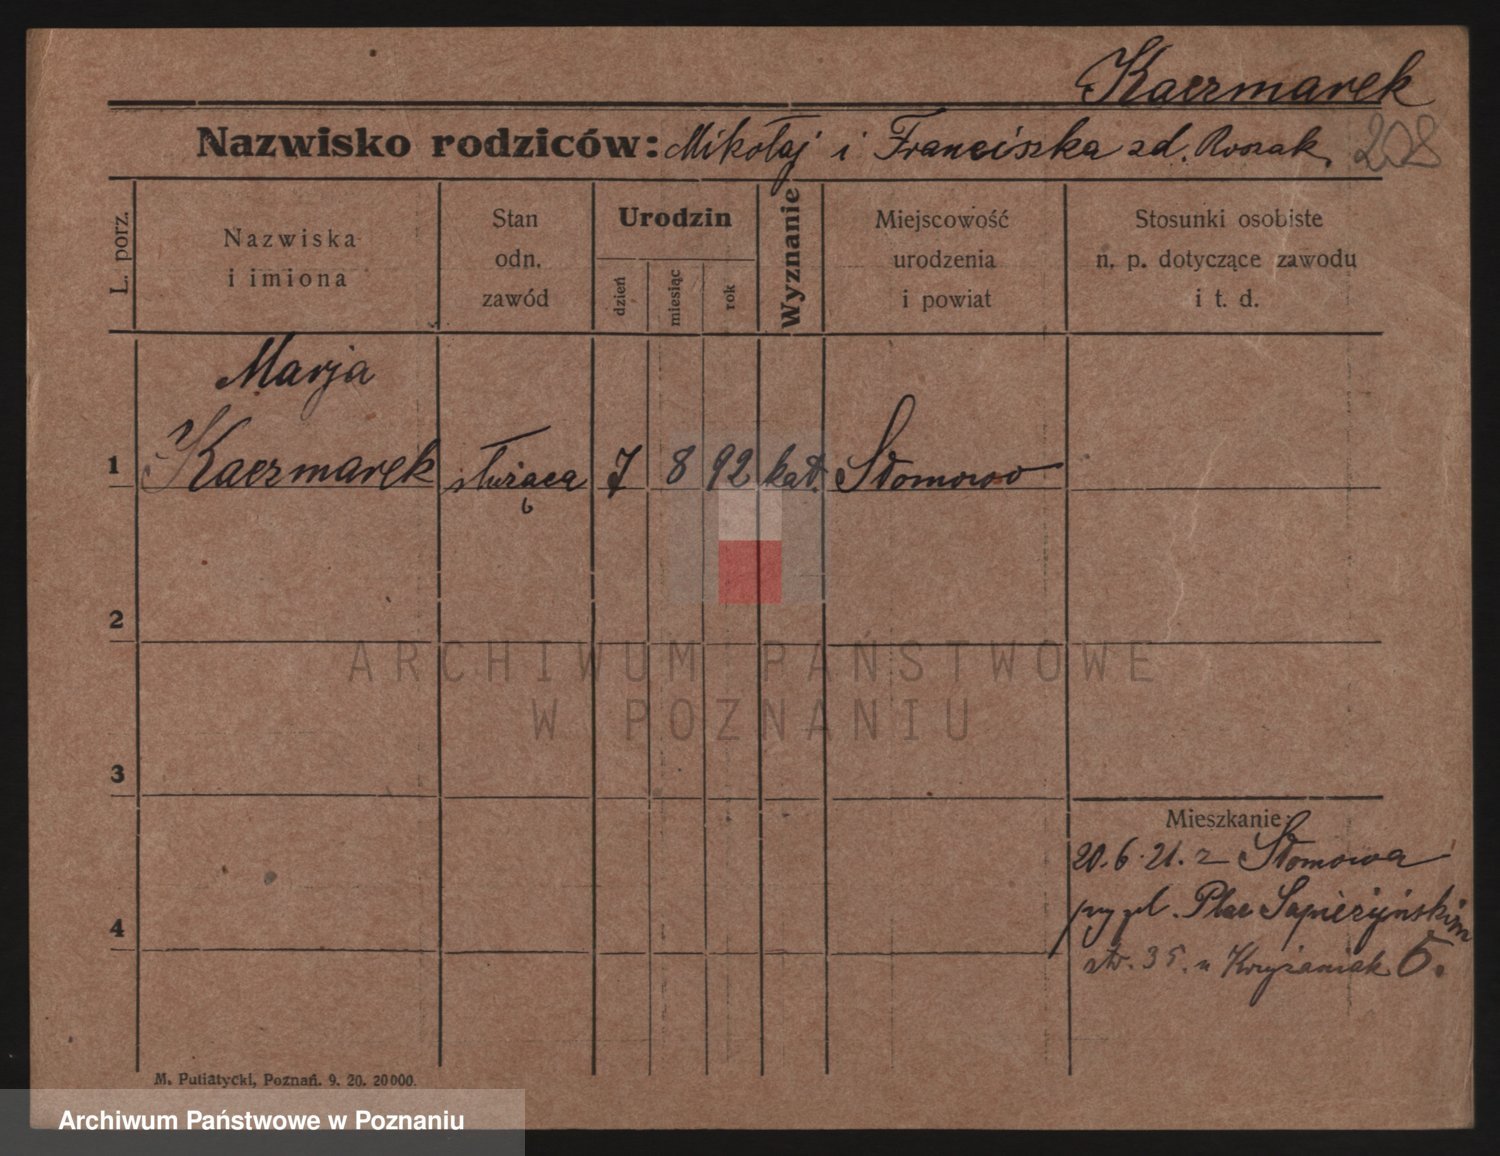 Kaczmarek
Nazwisko rodziców: Mikołaj i Franciszka zd. Roszak. 208
L. porz.
Nazwiska
i imiona
Stan
odn.
zawód
Urodzin
dzień
miesiąc
rok
Wyznanie
Miejscowość
urodzenia
i powiat
Stosunki osobiste
n. p. dotyczące zawodu
i t. d.
Marja
1 Kaczmarek służąca 7 8 92 kat. Słomowo
2
ARCHIWUM PAŃSTWOWE
W POZNANIU
3
Mieszkanie:
20.6.21. z Słomowa
4
Plac Sapieżyńskim
str. 35. u Krzyżaniak 5.
M. Putiatycki, Poznań. 9. 20. 20000.
Archiwum Państwowe w Poznaniu